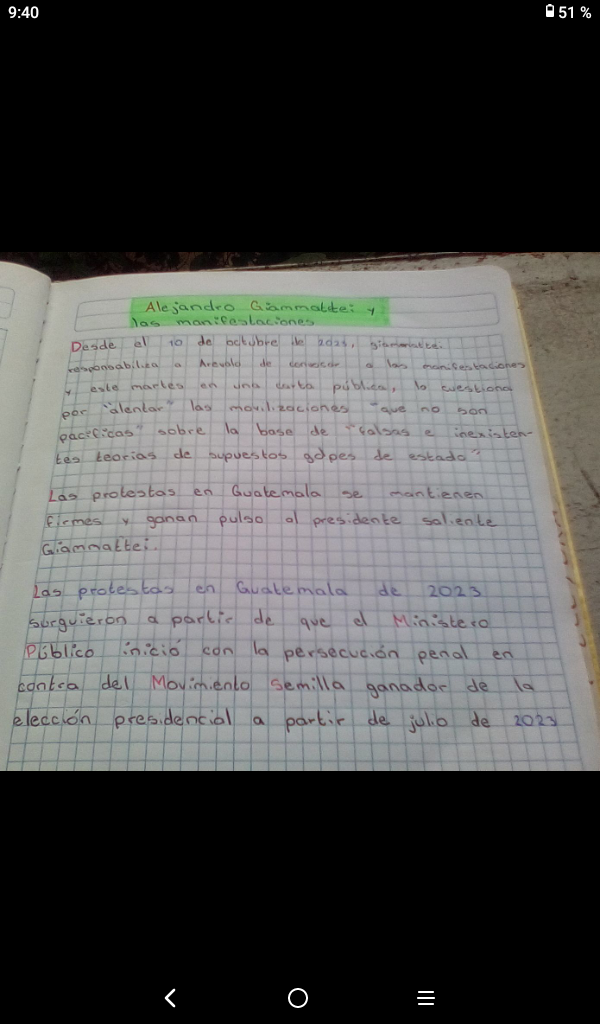 9:40
51 %
Alejandro Giammattei y
las manifestaciones
Desde el 10 de octubre de 2023, giammattei
responsabiliza a Arevalo de convocar a las manifestaciones
y este martes en una carta pública, lo cuestiona
por "alentar" las movilizaciones "que no son
pacificas" sobre la base de "falsas e inexisten-
tes teorias de supuestos golpes de estado"
Las protestas en Guatemala se mantienen
firmes y ganan pulso al presidente saliente
Giammattei.
Las protestas en Guatemala de 2023
surguieron a partir de que el Ministero
Público inició con la persecución penal en
contra del Movimiento Semilla ganador de la
elección presidencial a partir de julio de 2023